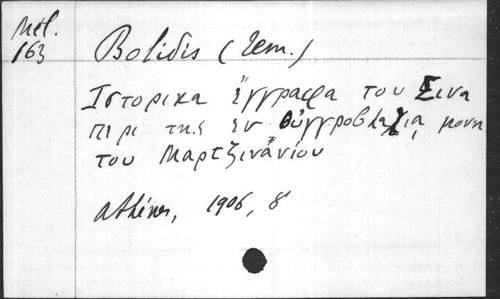 Mél.
163
Bolidis (Tem.)
Ιστορικα έγγραφα του Σινα
περι της εν Ουγγροβλαχια μονη
του Μαρτζινάνίου
Athènes, 1906, 8°